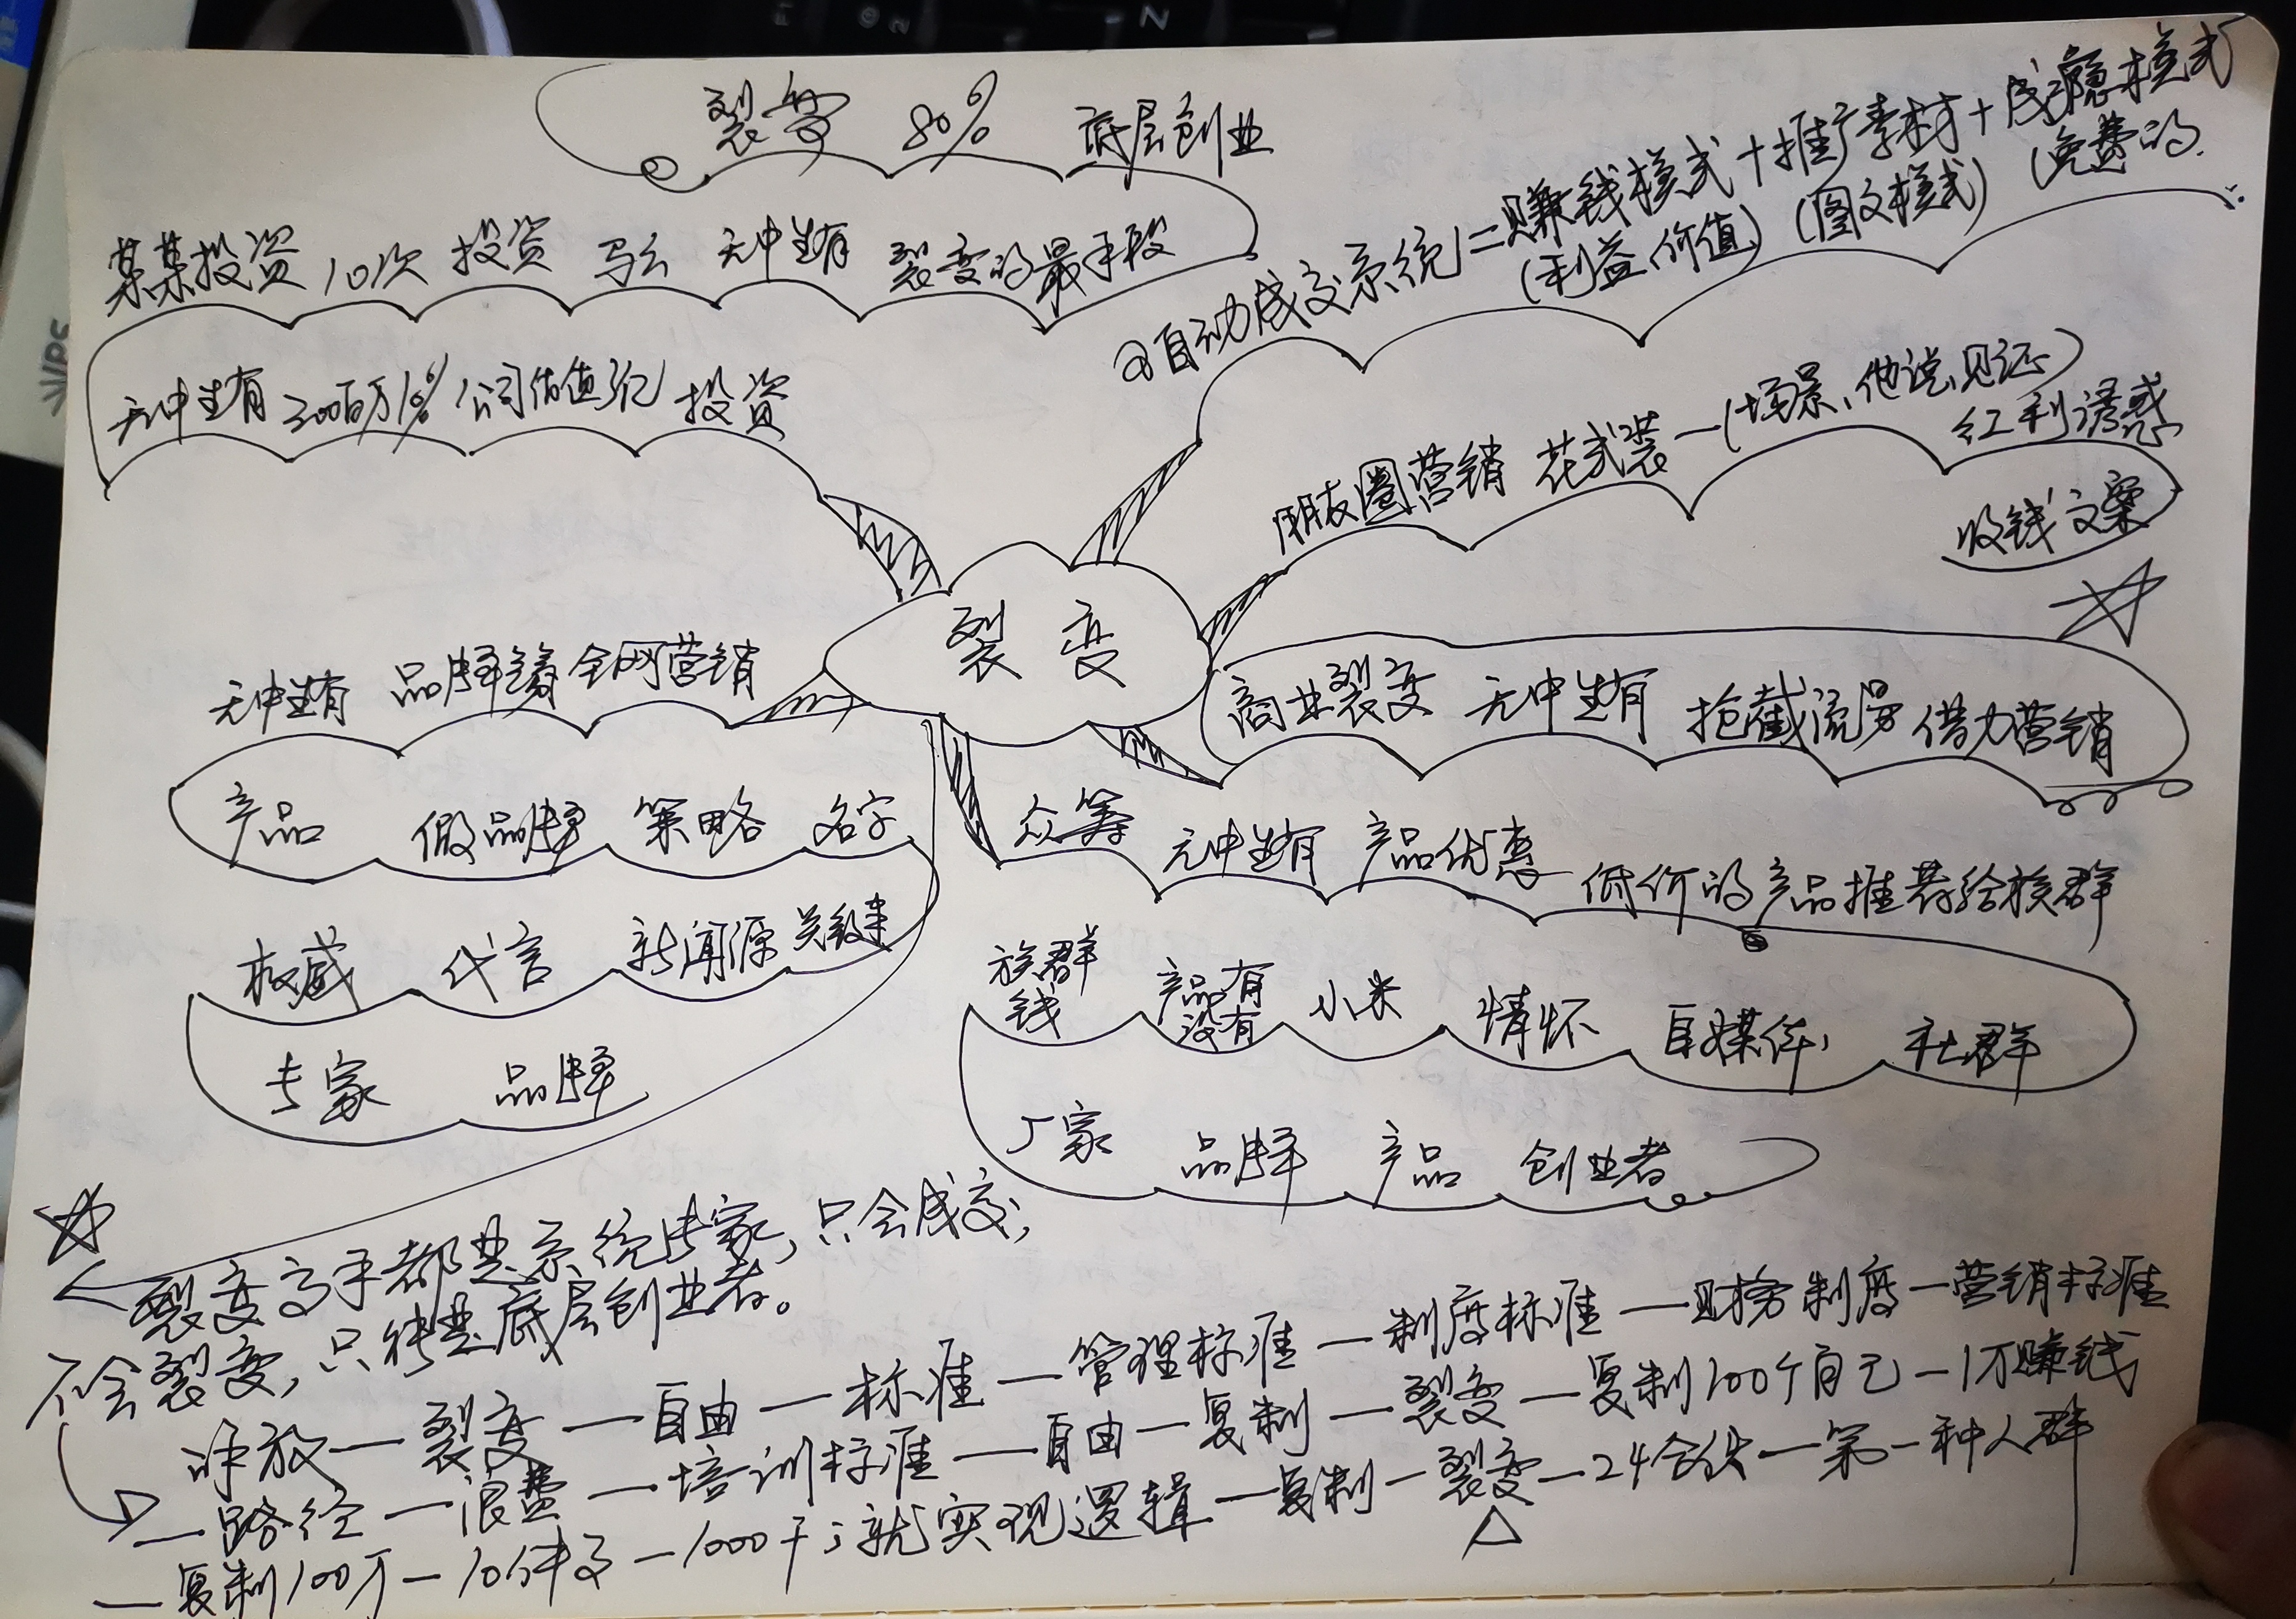 裂变 80% 底层创业
某某投资 10次 投资 马云 无中生有 裂变的最手段
无中生有 300百万1% 公司估值3亿 投资
②自动成交系统=赚钱模式+推广素材+成瘾模式
(利益、价值) (图文模式) (免费的
朋友圈营销 花式装—(场景、他说、见证)
红利诱惑
收钱文案
裂变
商业裂变 无中生有 抢截流量 借力营销
无中生有 品牌 全网营销
产品 做品牌 策略 名字
权威 代言 新闻源 关键
专家 品牌
众筹 无中生有 产品优惠 低价的产品推荐给族群
族群 产品有 小米 情怀 自媒体 社群
钱 没有
厂家 品牌 产品 创业者
裂变高手都是系统专家,只会成交,
不会裂变,只能是底层创业者。
裂变—自由—标准—管理标准—制度标准—财务制度—营销标准
—路径—浪费—培训标准—自由—复制—裂变—复制100个自己—1万赚钱
—复制100万—10个—1000千;就实现逻辑—复制—裂变—24合伙—第一种人群